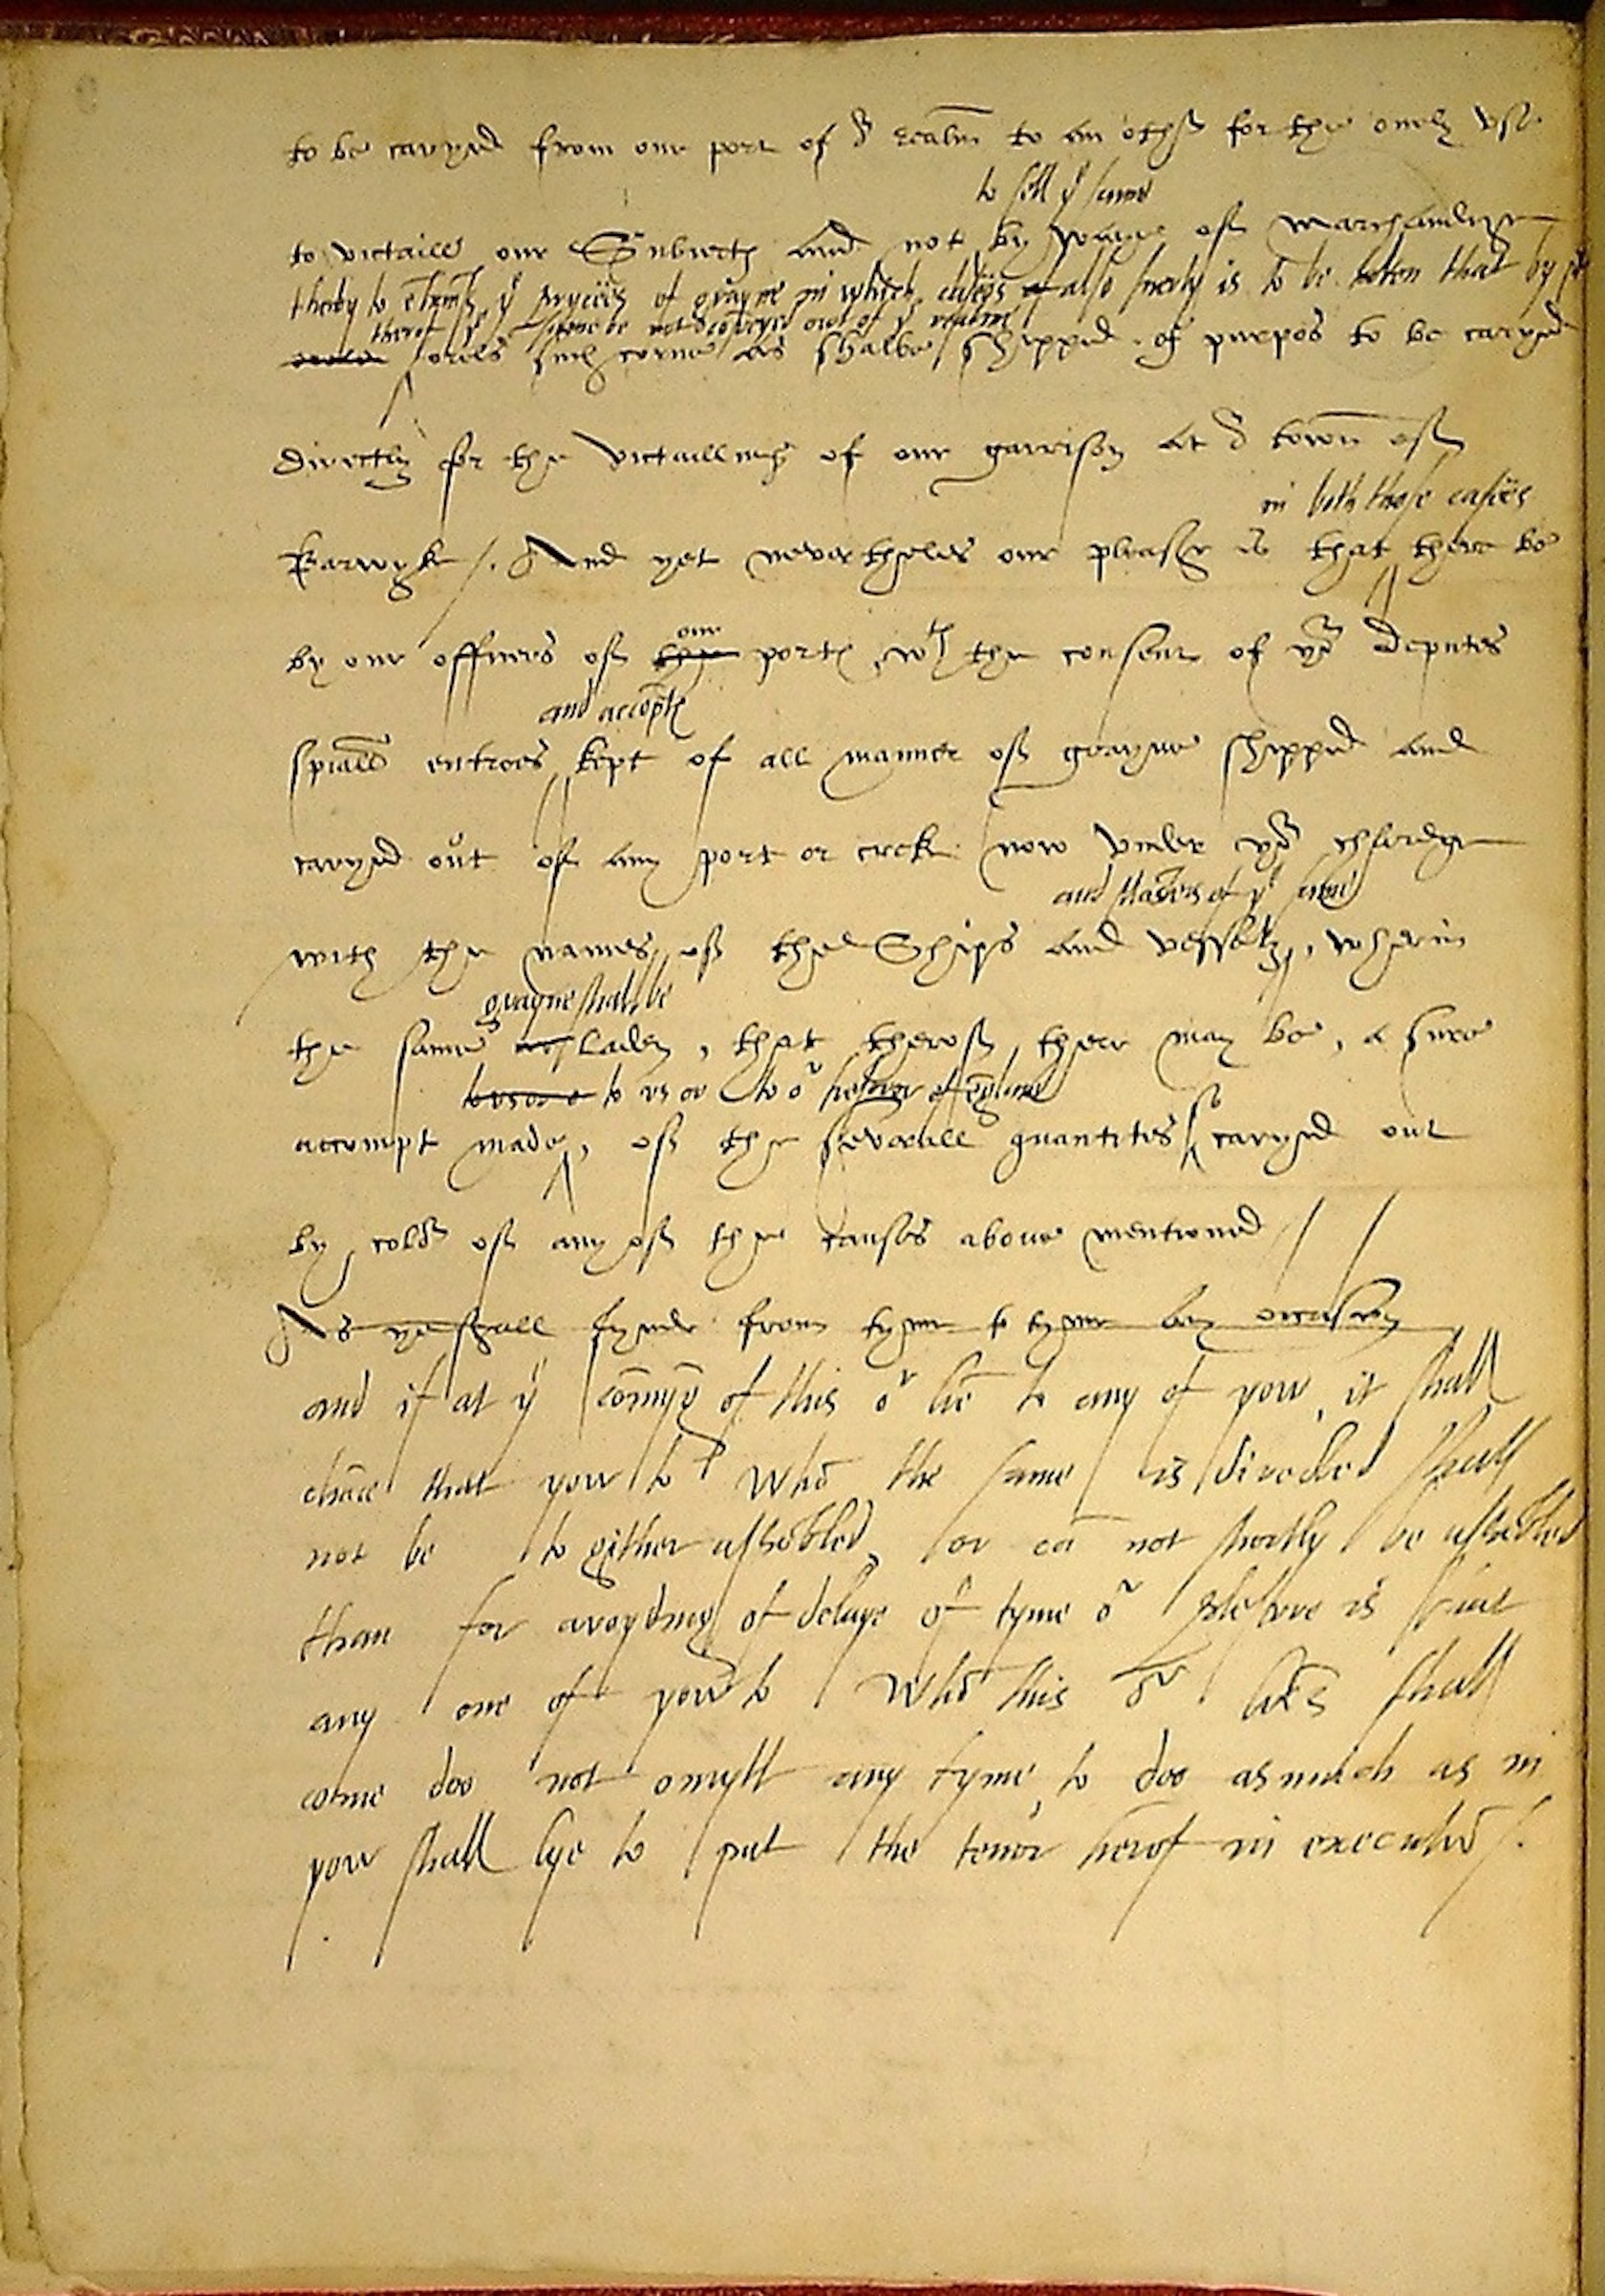 to be caryed from one port of yr realm to an other for the onely vse
to sell ye same
to victaill our Subiectes and not by waye of marchandize
thereby to ye pryces of grayne in which cases also suerty is to be taken that by
therof ye same be not conveyed out of ye realme
orels such corne as shalbe shipped of purpos to be caryed
directly for the victualling of our garrison at or town of
in both those cases
Barwyk /. And yet nevertheles our pleasur is that there be
by our officers of the our portes, wth the consent of yor deputes
and accomptes
speciall entrees kept of all manner of grayne shipped and
caryed out of any port or creke now vnder yor chardge
and masters of ye same
with the names of the Ships and vesselles, wherin
grayne shall be
the same laden, that therof ther may be, a sure
to vs or to or of
accompt made, of the severall quantites so caryed out
by color of any of the causes above mentioned //
As ye shall fynde from tyme to tyme any occasion
and if at ye comyng of this or lre to any of yow, it shall
chace that yow to whō the same is directed shall
not be to gither assēbled, or cā not shortly be assēbled
than for avoydīng of delaye of tyme or plesure is that
any one of yow to whō this or lres shall
come doo not omytt any tyme, to doo as much as in
yow shall lye to put the tenor herof in executiō /.